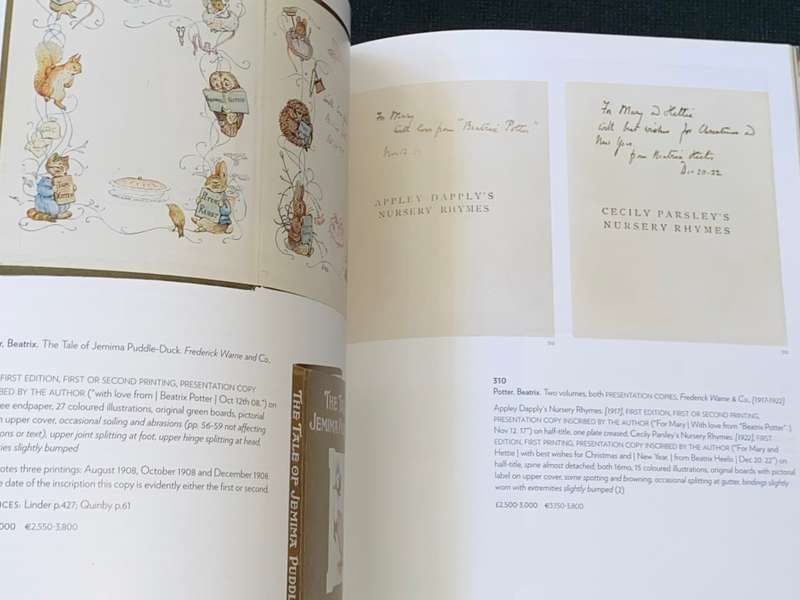 TOM
KITTEN
r, Beatrix. The Tale of Jemima Puddle-Duck. Frederick Warne and Co,
FIRST EDITION, FIRST OR SECOND PRINTING, PRESENTATION COPY
BED BY THE AUTHOR ("with love from | Beatrix Potter | Oct 12th 08.") on
ee endpaper, 27 coloured illustrations, original green boards, pictorial
n upper cover, occasional soiling and abrasions (pp. 56-59 not affecting
ons or text), upper joint splitting at foot, upper hinge splitting at head,
ies slightly bumped
otes three printings: August 1908, October 1908 and December 1908.
e date of the inscription this copy is evidently either the first or second.
NCES: Linder p.427; Quinby p.61
000 €2,550-3,800
THE TALE OF JEMIMA PUDD
THE
JEMIMA
For Mary
with love from "Beatrix Potter"
Nov. 12. 17
APPLEY DAPPLY'S
NURSERY RHYMES
310
For Mary & Hettie
with best wishes for Christmas &
New Year,
from Beatrix Heelis
Dec 20. 22
CECILY PARSLEY'S
NURSERY RHYMES
310
310
Potter, Beatrix. Two volumes, both PRESENTATION COPIES, Frederick Warne & Co., [1917-1922]
Appley Dapply's Nursery Rhymes. [1917], FIRST EDITION, FIRST OR SECOND PRINTING,
PRESENTATION COPY INSCRIBED BY THE AUTHOR ("For Mary | With love from "Beatrix Potter". |
Nov. 12. 17.") on half-title, one plate creased; Cecily Parsley's Nursery Rhymes. [1922], FIRST
EDITION, FIRST PRINTING, PRESENTATION COPY INSCRIBED BY THE AUTHOR ("For Mary and
Hettie | with best wishes for Christmas and | New Year, | from Beatrix Heelis | Dec. 20. 22") on
half-title, spine almost detached; both 16mo, 15 coloured illustrations, original boards with pictorial
label on upper cover, some spotting and browning, occasional splitting at gutter, bindings slightly
worn with extremities slightly bumped (2)
£2,500-3,000 €3,150-3,800